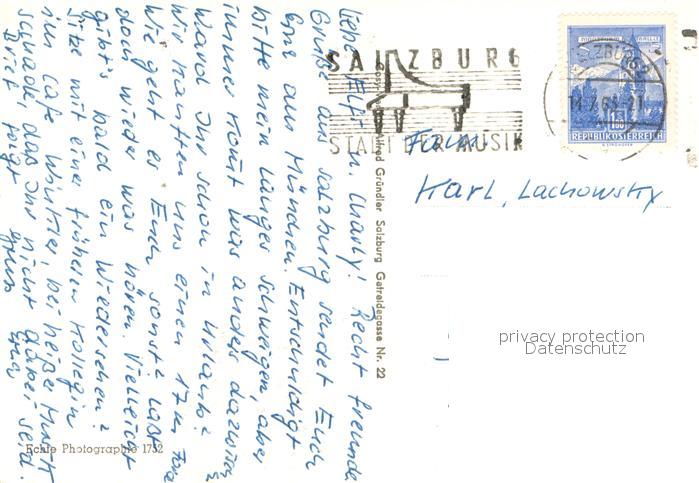 Liebe Elfi u. Charly! Recht freundl.
Grüße aus Salzburg sendet Euch
Erni aus München. Entschuldigt
bitte mein langes Schweigen, aber
immer kommt was anders dazwischen
Ward Ihr schon in Urlaub?
Wir kauften uns einen 17m
Wie geht es Euch sonst? Laßt
doch wieder was hören. Vielleicht
gibt's bald ein Wiedersehen?
Sitze mit einer früheren Kollegin
im Café Winkler, bei heißer Musik
schade, das Ihr nicht dabei seid.
Brief folgt Gruss Erni
Echte Photographie 1752
Alfred Gründler Salzburg Getreidegasse Nr. 22
SALZBURG
STADT DER MUSIK
SALZBURG 2
14.7.68-21
1.50
REPUBLIK ÖSTERREICH
Karl, Lachowsky
privacy protection
Datenschutz